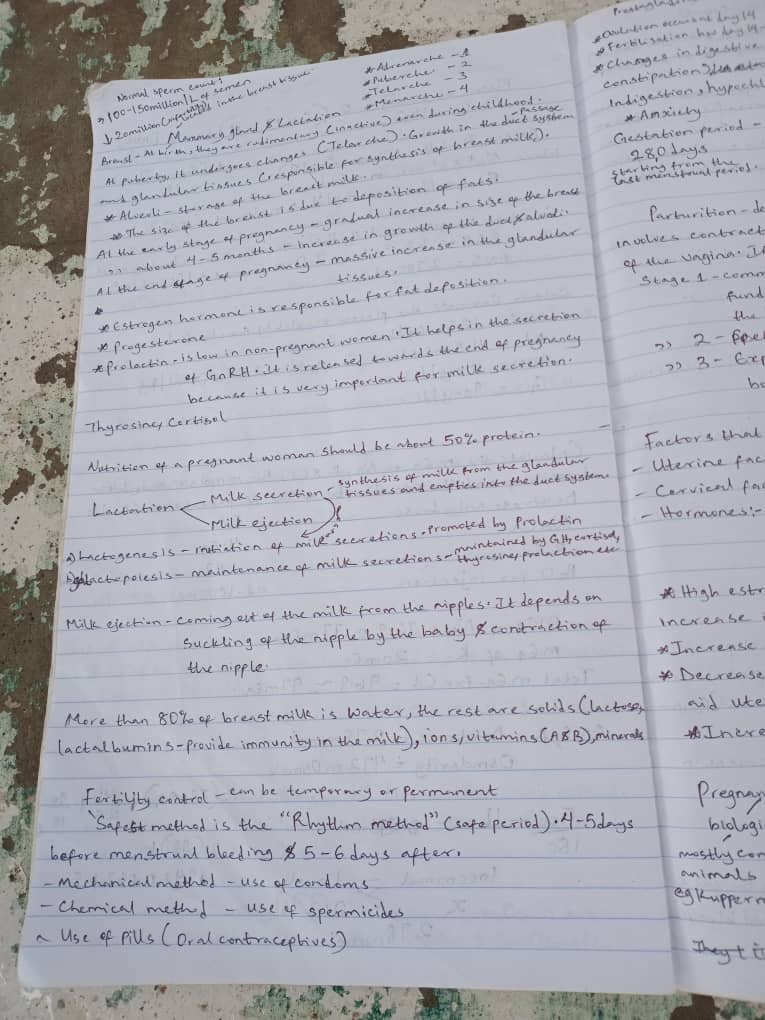 Normal sperm count:
→ 100-150million/L of semen
↓ 20million (infertility)
* Adrenarche - 1
* Puberche - 2
* Telarche - 3
* Menarche - 4
in the breast tissue.
Mammary gland & Lactation
Breast - At birth, they are rudimentary (inactive) even during childhood.
At puberty, it undergoes changes (Telarche). Growth in the duct system
passage
and glandular tissues (responsible for synthesis of breast milk).
* Alveoli - storage of the breast milk.
* The size of the breast is due to deposition of fats.
At the early stage of pregnancy - gradual increase in size of the breast
,, about 4-5 months - increase in growth of the duct & alvoli.
At the end stage of pregnancy - massive increase in the glandular
tissues.
* Estrogen hormone is responsible for fat deposition.
* Progesterone
* Prolactin - is low in non-pregnant women. It helps in the secretion
of GnRH. It is released towards the end of pregnancy
because it is very important for milk secretion.
Thyrosine, Cortisol
Nutrition of a pregnant woman should be about 50% protein.
Lactation
Milk secretion - synthesis of milk from the glandular
tissues and empties into the duct system.
Milk ejection
a) Lactogenesis - initiation of milk secretions - Promoted by Prolactin
b) galactopoiesis - maintenance of milk secretions - maintained by GH, cortisol,
thyrosine, prolactin etc
Milk ejection - coming out of the milk from the nipples. It depends on
suckling of the nipple by the baby & contraction of
the nipple.
More than 80% of breast milk is water, the rest are solids (lactose,
lactalbumins - provide immunity in the milk), ions, vitamins (A & B), minerals
Fertility control - can be temporary or permanent
Safest method is the "Rhythm method" (safe period). 4-5days
before menstrual bleeding & 5-6 days after.
- Mechanical method - use of condoms
- Chemical method - use of spermicides
~ Use of Pills (Oral contraceptives)
* Ovulation occurs at day 14
* Fertilisation how day 14-
* Changes in digestive
constipation
Indigestion, hypochl
* Anxiety
Gestation period -
280 days
starting from the
last menstrual period.
Parturition - de
involves contract
of the vagina. It
Stage 1 - comm
fund
the
,, 2 -
,, 3 - Exp
Factors that
- Uterine fac
- Cervical fac
- Hormones:-
* High estr
increase
* Increase
* Decrease
aid ute
* Incre
Pregnan
biologi
mostly con
animals
eg Kupperm